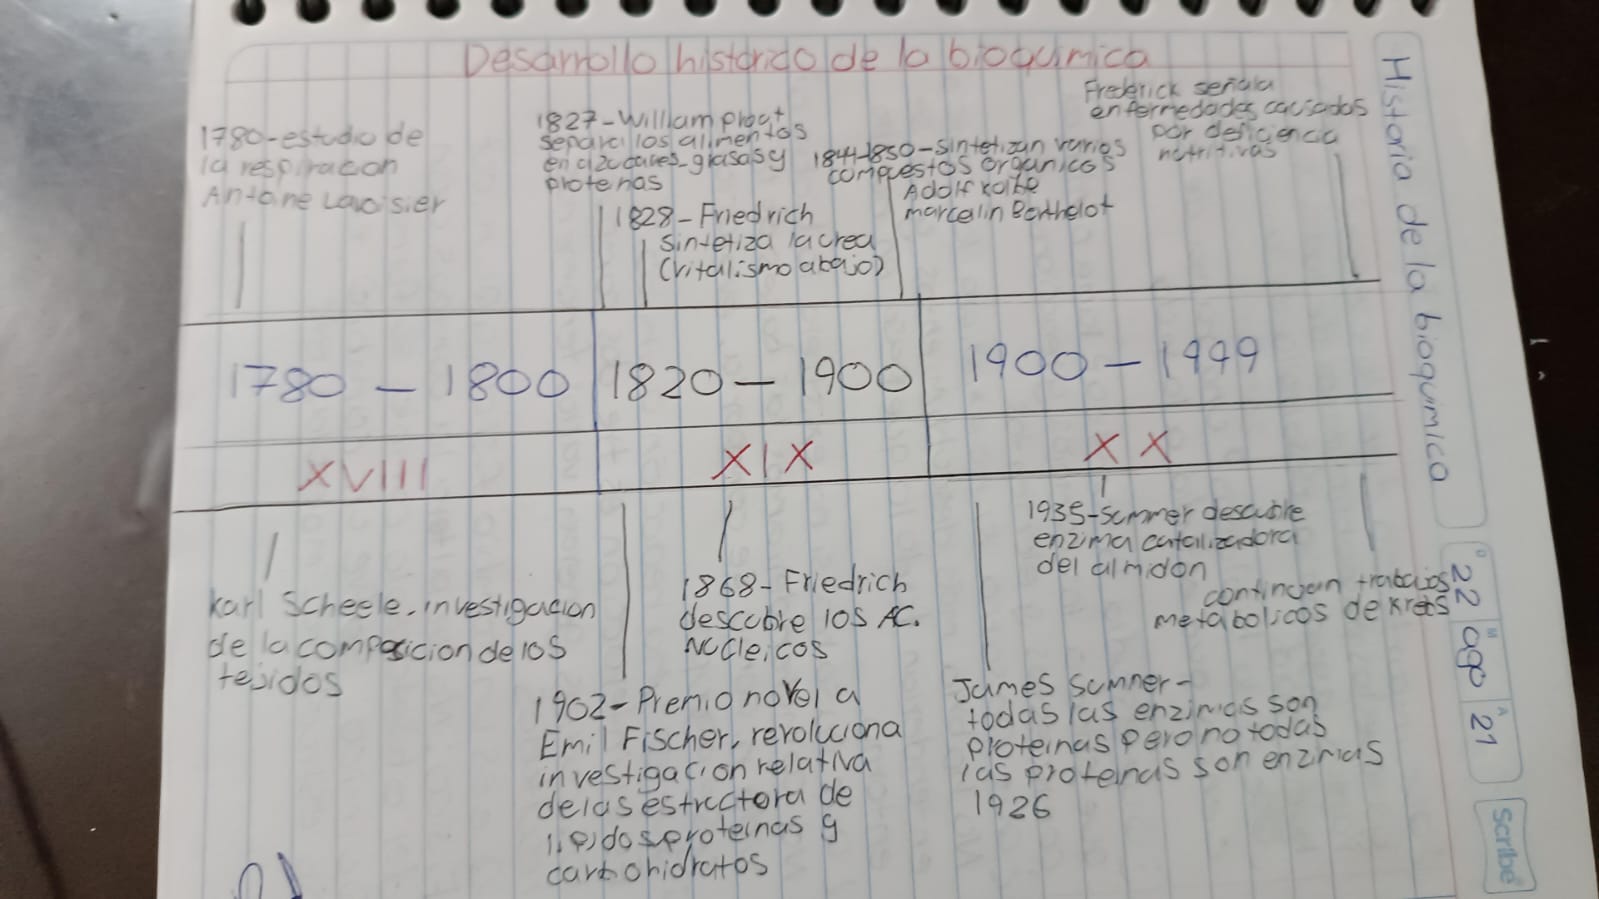 Desarrollo historico de la bioquimica
Historia de la bioquimica
D 22 M ago A 21
Scribe
1780-estudio de
la respiracion
Antoine Lavoisier
1827-William prout
separa los alimentos
en azucares-grasas y
proteinas
1828-Friedrich
sintetiza la urea
(vitalismo abajo)
1844-1850-sintetizan varios
compuestos organicos
Adolf Kolbe
marcelin Berthelot
Frederick señala
enfermedades causadas
por deficiencia
nutritivas
1780 - 1800
1820 - 1900
1900 - 1999
XVIII
XIX
XX
Karl Scheele. investigacion
de la composicion de los
tejidos
1868-Friedrich
descubre los AC.
Nucleicos
1902-Premio novel a
Emil Fischer, revoluciona
investigacion relativa
de las estructura de
lipidos proteinas y
carbohidratos
1935-sumner descubre
enzima catalizadora
del almidon
continuan trabajos
metabolicos de krebs
James Sumner-
todas las enzimas son
proteinas pero no todas
las proteinas son enzimas
1926